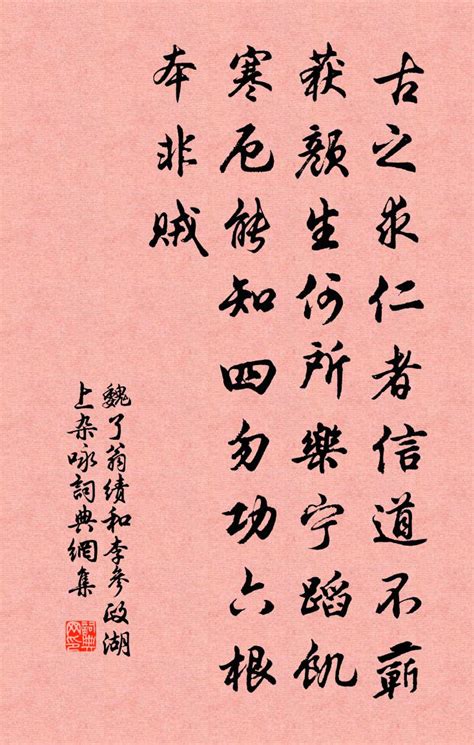 古之求仁者信道不蕲
获颜生何所樂宁蹈饥
寒厄能知四勿功六根
本非贼
魏了翁绩和李參政湖
上杂咏詞典網集